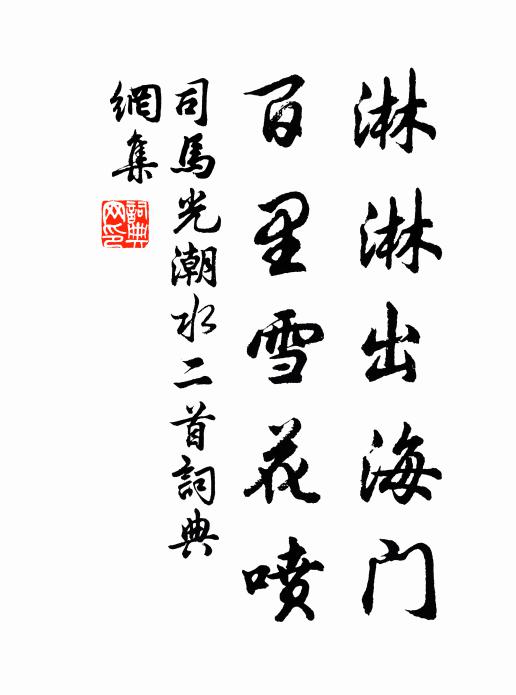 淋淋出海门
百里雪花喷
司馬光潮水二首詞典
網集
詞典
网印